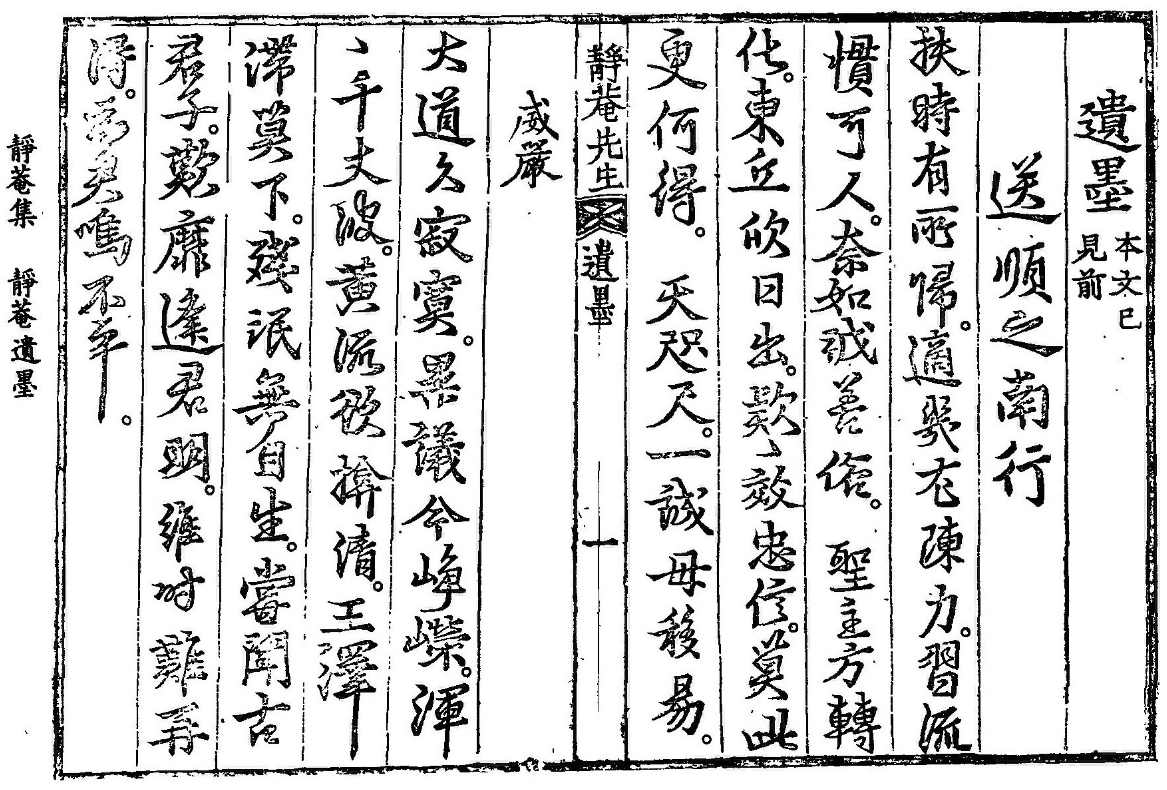 遺墨 本文已
見前
送順之南行
扶時有所歸。適陳力。習流
慣可人。奈如誠善俗。聖主方轉
化。東丘欣日出。款〻效忠信。莫此
更何得。天咫尺。一誠毋移易。
靜菴先生 遺墨 一
威嚴
大道久寂寞。異議今崢嶸。渾
〻千丈波。黃流欲揜淸。王澤
滯莫下。殘氓無自生。嘗聞古
君子。歎靡逢君明。維時難再
得。鳴不平。
靜菴集 靜菴遺墨